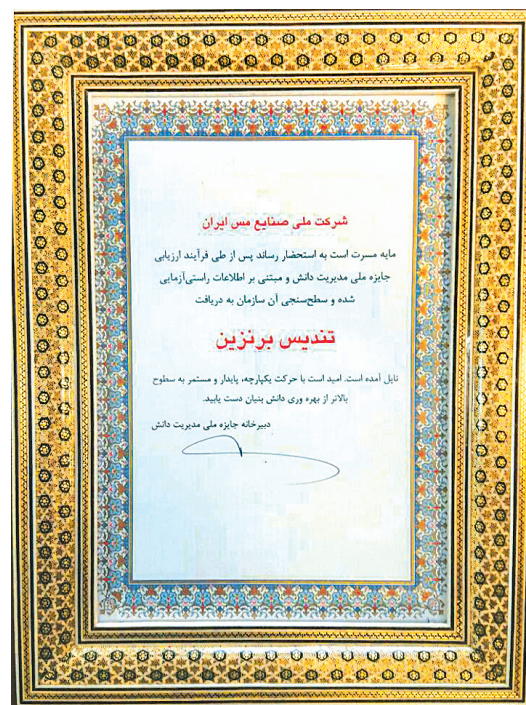 شرکت ملی صنایع مس ایران
مایه مسرت است به استحضار رساند پس از طی فرآیند ارزیابی
جایزه ملی مدیریت دانش و مبتنی بر اطلاعات راستی‌آزمایی
شده و سطح‌سنجی آن سازمان به دریافت
تندیس برنزین
نایل آمده است. امید است با حرکت یکپارچه، پایدار و مستمر به سطوح
بالاتر از بهره وری دانش بنیان دست یابید.
دبیرخانه جایزه ملی مدیریت دانش